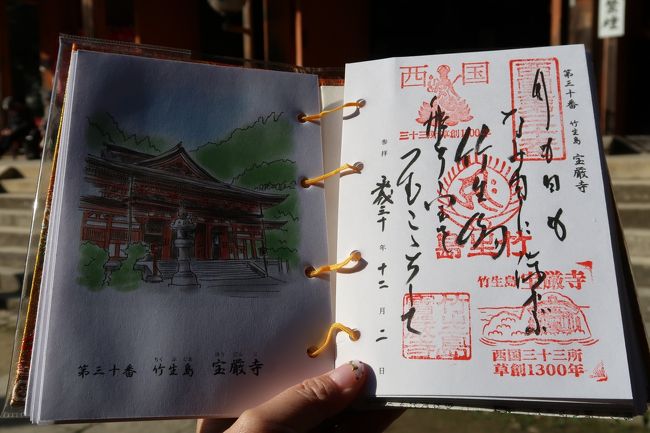 禁煙
第三十番 竹生島 宝厳寺
月も日も
なみ間に浮ぶ
竹生島
つむここちして
西国
三十三所 草創1300年
竹生島
竹生島 宝厳寺
西国三十三所
草創1300年
参拝 三十年 十二月 二日
第三十番 竹生島 宝厳寺